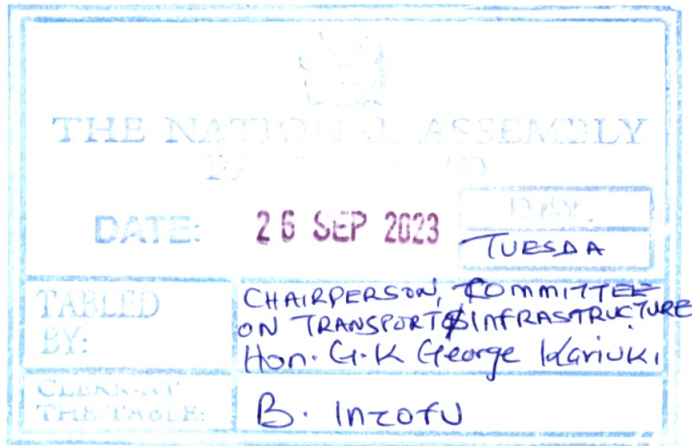 THE NATIONAL ASSEMBLY
DATE:
26 SEP 2023
DAY.
TUESDA
TABLED
BY:
CHAIRPERSON, COMMITTEE
ON TRANSPORT & INFRASTRUCTURE
Hon. G.K George Kariuki
CLERK-AT
THE-TABLE:
B. Inzofu